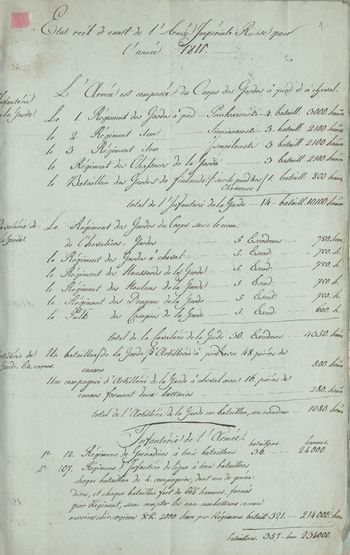 Etat réel et exact de l'Armée Impériale Russe pour
l'année 1811.
L'Armée est composée du Corps des Gardes à pied et à cheval.
Infanterie
de la Garde.
Le 1 Régiment des Gardes à pied — Preobragenski — 4 bataill. 3000 hom
le 2 Régiment idem — Semenowski — 3 bataill. 2100 hom
le 3 Régiment idem — Ismailowski — 3 bataill. 2100 hom
le Régiment des Chasseurs de la Garde — 3 bataill. 2100 hom
le Bataillon des Gardes de Finlande sur le pied des Chasseurs 1. bataill. 800 hom
total de l'Infanterie de la Garde — 14 — bataill. 10,100 hom
Cavalerie de
la Garde.
Le Régiment des Gardes du Corps sous le nom
de Chevaliers-Gardes — 5 Escadrons — 750 hom
le Régiment des Gardes à cheval — 5 Escad. — 750 h.
le Régiment des Houssards de la Garde — 5 Escad. — 750 h.
le Régiment des Houlans de la Garde — 5 Escad. — 750 h.
le Régiment des Dragons de la Garde — 5 Escad. — 750 h.
le Pulk des Cosaques de la Garde — 5 Escad. — 600 h.
total de la Cavalerie de la Garde 30. Escadrons — 4350 hom
Artillerie de
la Garde. 64. canons.
Un bataillon de la Garde d'Artillerie à pied avec 48 pièces de
canons — 800 hom
Une compagnie d'Artillerie de la Garde à cheval avec 16 pièces de
canons formant deux batteries — 280 hom
total de l'Artillerie de la Garde un bataillon, un escadron — 1080 hom
Infanterie de l'Armée.
bataillons hommes
1º 12. Régimens de Grenadiers à trois bataillons 36. — 24000
2º 107. Régimens d'Infanterie de ligne à trois bataillons
chaque bataillon de 4 compagnies, dont une de grena-
diers, et chaque bataillon fort de 666 hommes, faisant
par Régiment, sans compter les non-combattans comme
ouvriers chirurgiens &&. 2000 hom par Régiment bataill 321. — 214000 hom
bataillons 357. hom 238000.